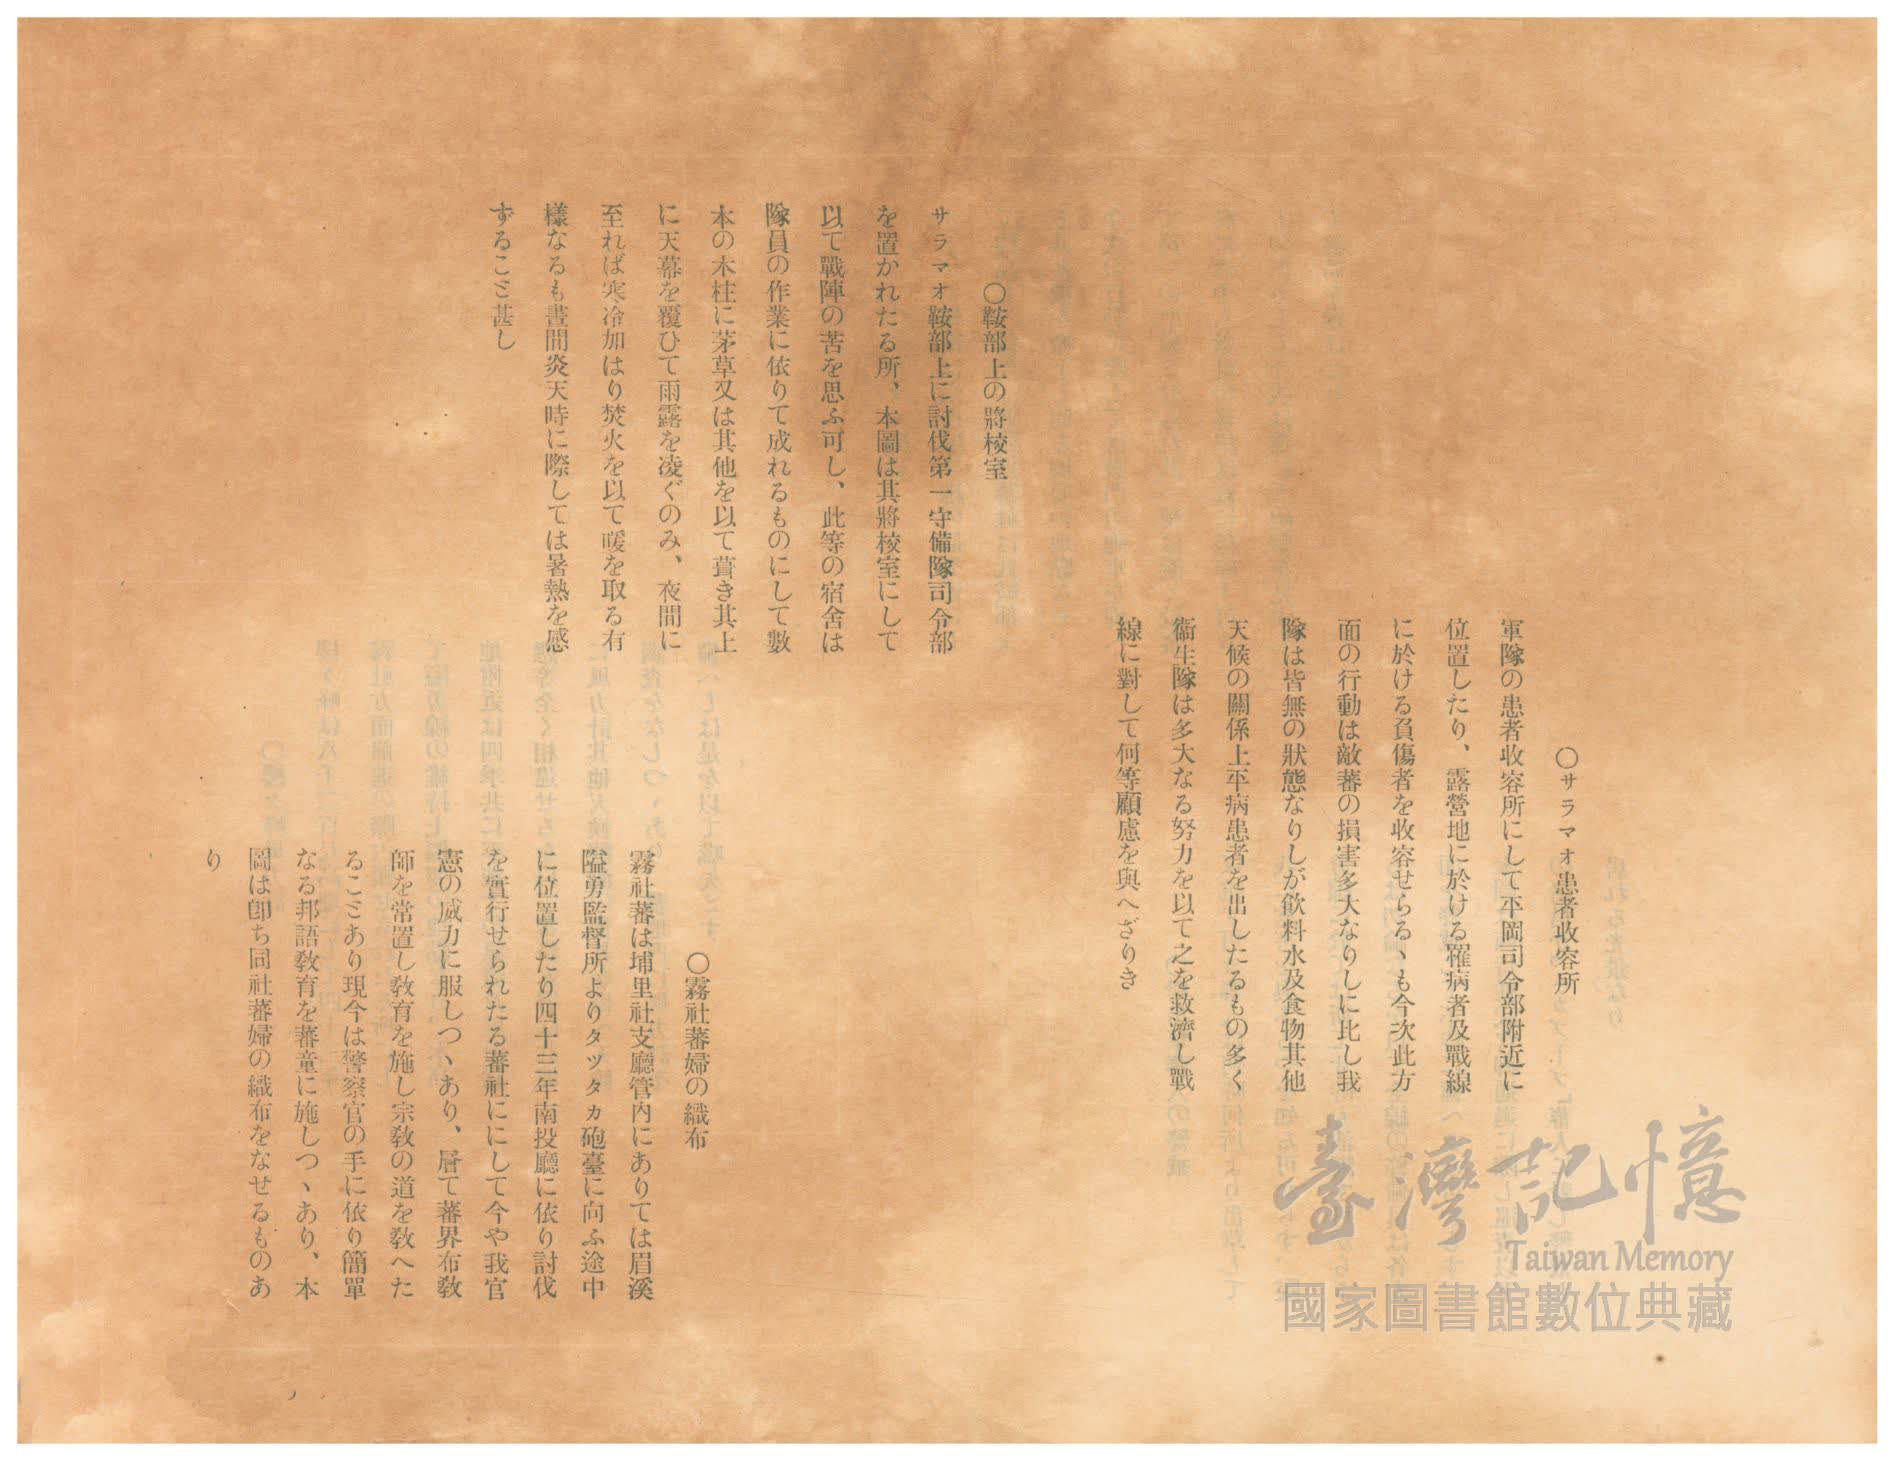 〇サラマオ患者收容所
軍隊の患者收容所にして平岡司令部附近に
位置したり、露營地に於ける罹病者及戰線
に於ける負傷者を收容せらるゝも今次此方
面の行動は敵蕃の損害多大なりしに比し我
隊は皆無の狀態なりしが飮料水及食物其他
天候の關係上平病患者を出したるもの多く
衞生隊は多大なる努力を以て之を救濟し戰
線に對して何等顧慮を與へざりき
〇鞍部上の將校室
サラマオ鞍部上に討伐第一守備隊司令部
を置かれたる所、本圖は其將校室にして
以て戰陣の苦を思ふ可し、此等の宿舍は
隊員の作業に依りて成れるものにして數
本の木柱に茅草又は其他を以て葺き其上
に天幕を覆ひて雨露を凌ぐのみ、夜間に
至れば寒冷加はり焚火を以て暖を取る有
樣なるも晝間炎天時に際しては暑熱を感
ずること甚し
〇霧社蕃婦の織布
霧社蕃は埔里社支廳管内にありては眉溪
隘勇監督所よりタッタカ砲臺に向ふ途中
に位置したり四十三年南投廳に依り討伐
を實行せられたる蕃社ににして今や我官
憲の威力に服しつゝあり、層て蕃界布教
師を常置し教育を施し宗教の道を教へた
ることあり現今は警察官の手に依り簡單
なる邦語教育を蕃童に施しつゝあり、本
圖は卽ち同社蕃婦の織布をなせるものあ
り
臺灣記憶
Taiwan Memory
國家圖書館數位典藏